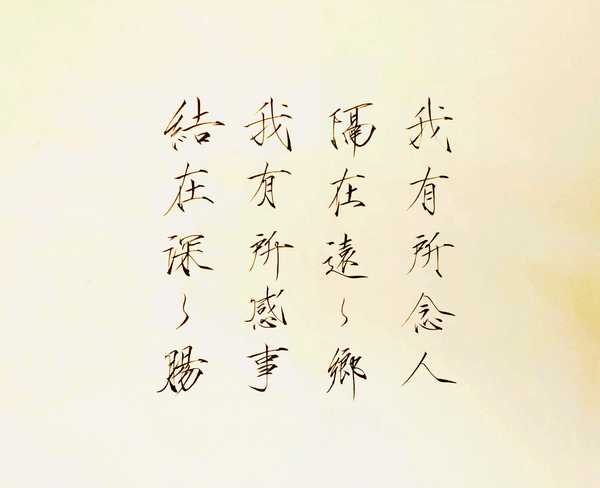 我有所念人
隔在遠々鄉
我有所感事
結在深々腸